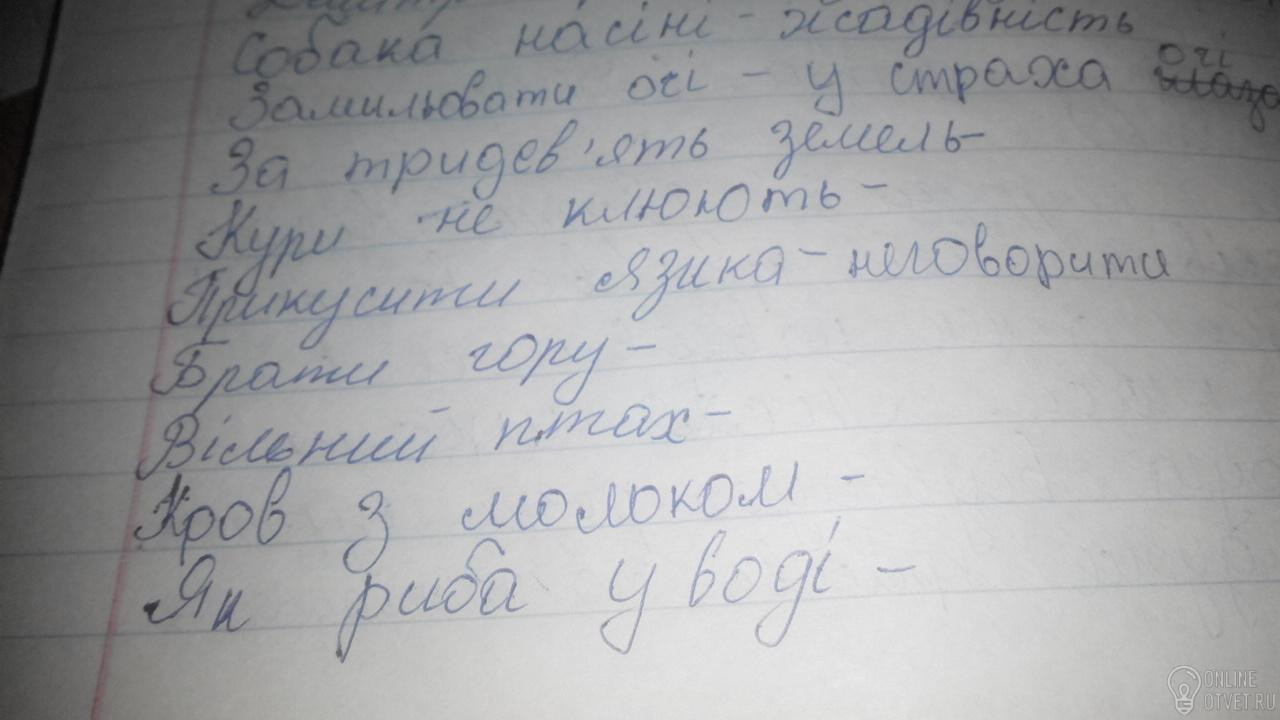 Собака на сіні - жадівність
Замилювати очі - у страха очі
За тридев'ять земель-
Кури не клюють-
Прикусити язика-неговорити
Брати гору-
Вільний птах-
Кров з молоком -
Як риба у воді -
ONLINE
OTVET.RU